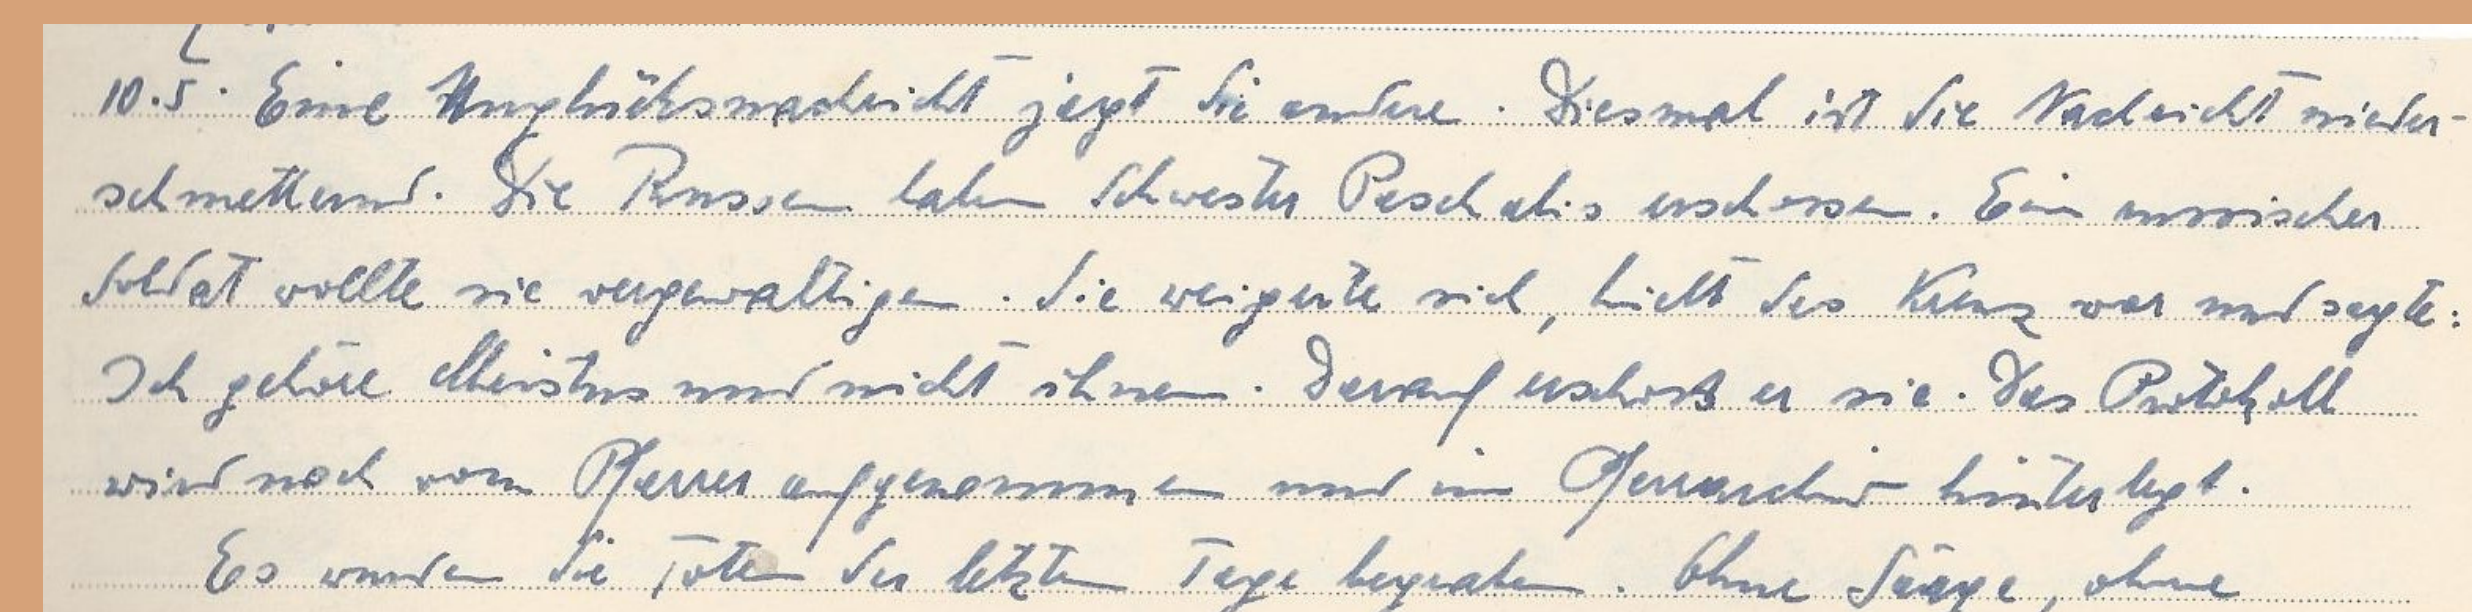 10.5. Eine Unglücksnachricht jagt die andere. Diesmal ist die Nachricht nieder-
schmetternd. Die Russen haben Schwester Paschalis erschossen. Ein russischer
Soldat wollte sie vergewaltigen. Sie weigerte sich, hielt das Kreuz vor und sagte:
Ich gehöre Christus und nicht ihnen. Darauf erschoß er sie. Das Protokoll
wird noch vom Pfarrer aufgenommen und im Pfarrarchiv hinterlegt.
Es wurden die Toten der letzten Tage begraben. Ohne Särge, ohne